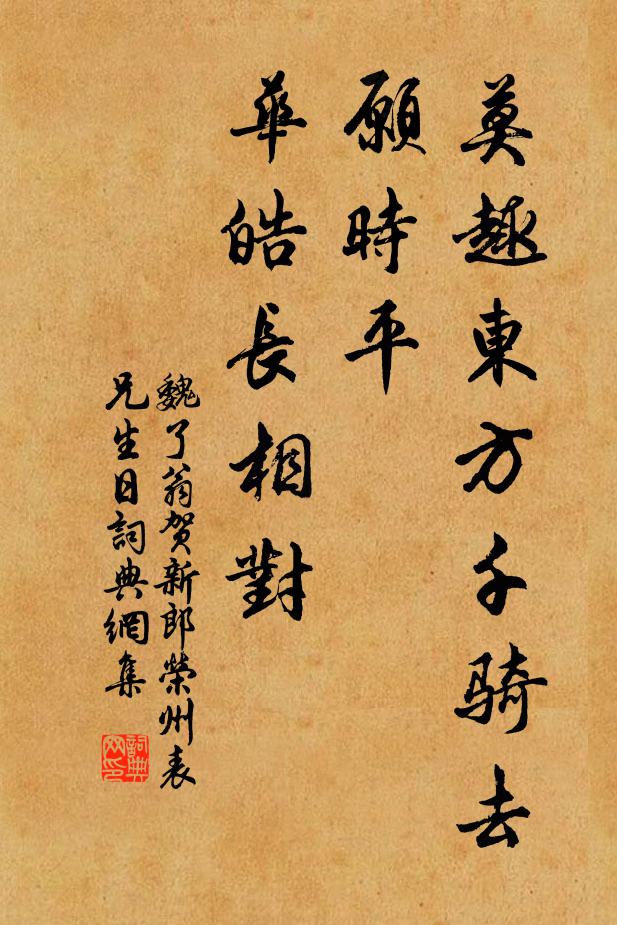 莫趣東方千騎去
願時平
華皓長相對
魏了翁贺新郎榮州表
兄生日詞典網集
詞典
网印